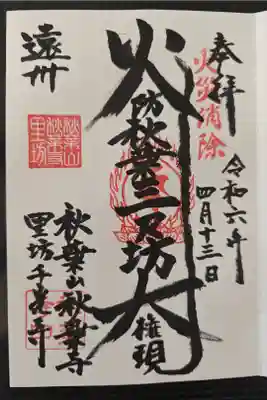 奉拝
火災消除
令和六年
四月十三日
火防秋葉三尺坊大権現
遠州
秋葉山秋葉寺
里坊千光寺